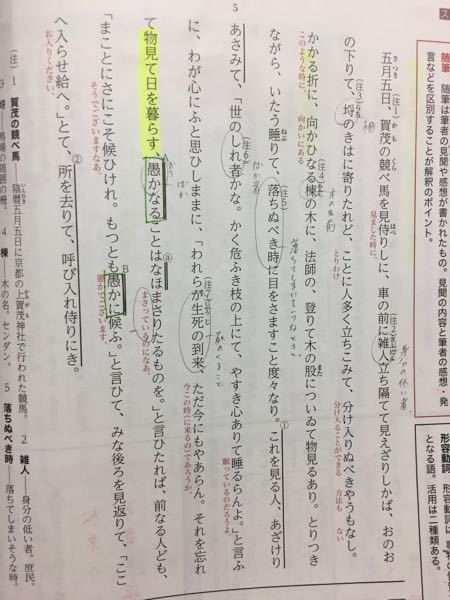 随筆 随筆は筆者の見聞や感想が書かれたもの。見聞の内容と筆者の感想・発
言などを区別することが解釈のポイント。
形容動詞
となる語 活用は二種類ある。
五月五日、賀茂の競べ馬を見侍りしに、車の前に雑人立ち隔てて見えざりしかば、おのお
さつき
(注)1
かも
くら
はべ
見ました時に、
(注)2
身分の低い者。
の下りて、埒のきはに寄りたれど、ことに人多く立ちこみて、分け入りぬべきやうもなし。
(注)3
柵
とりわけ
分け入ることができる 方法も ない
かかる折に、向かひなる楝の木に、法師の、登りて木の股についゐて物見るあり。とりつき
このような時に、
向かいにある
(注)4
木の名前
ながら、いたう睡りて、落ちぬべき時に目をさますこと度々なり。これを見る人、あざけり
ねぶ
(注)5
①
あさみて、「世のしれ者かな。かく危ふき枝の上にて、やすき心ありて睡るらんよ。」と言ふ
5
(注)6
ばか者
眠っているのだろうよ
に、わが心にふと思ひしままに、「われらが生死の到来、ただ今にもやあらん。それを忘れ
(注)7
今この時に来るのであろうか。
て物見て日を暮らす、愚かなることはなほまさりたるものを。」と言ひたれば、前なる人ども、
おろ
ⓐ
まさっているのになあ。
「まことにさにこそ候ひけれ。もつとも愚かに候ふ。」と言ひて、みな後ろを見返りて、「ここ
そうでございますなあ。
B
愚かでございます。
へ入らせ給へ。」とて、所を去りて、呼び入れ侍りにき。
お入りください。
②
(注) 1 賀茂の競べ馬――陰暦五月五日に京都の上賀茂神社で行われた競馬。 2 雑人――身分の低い者。庶民。
3 埒――馬場の周囲の柵。 4 楝――木の名。センダン。 5 落ちぬべき時――落ちてしまいそうな時。